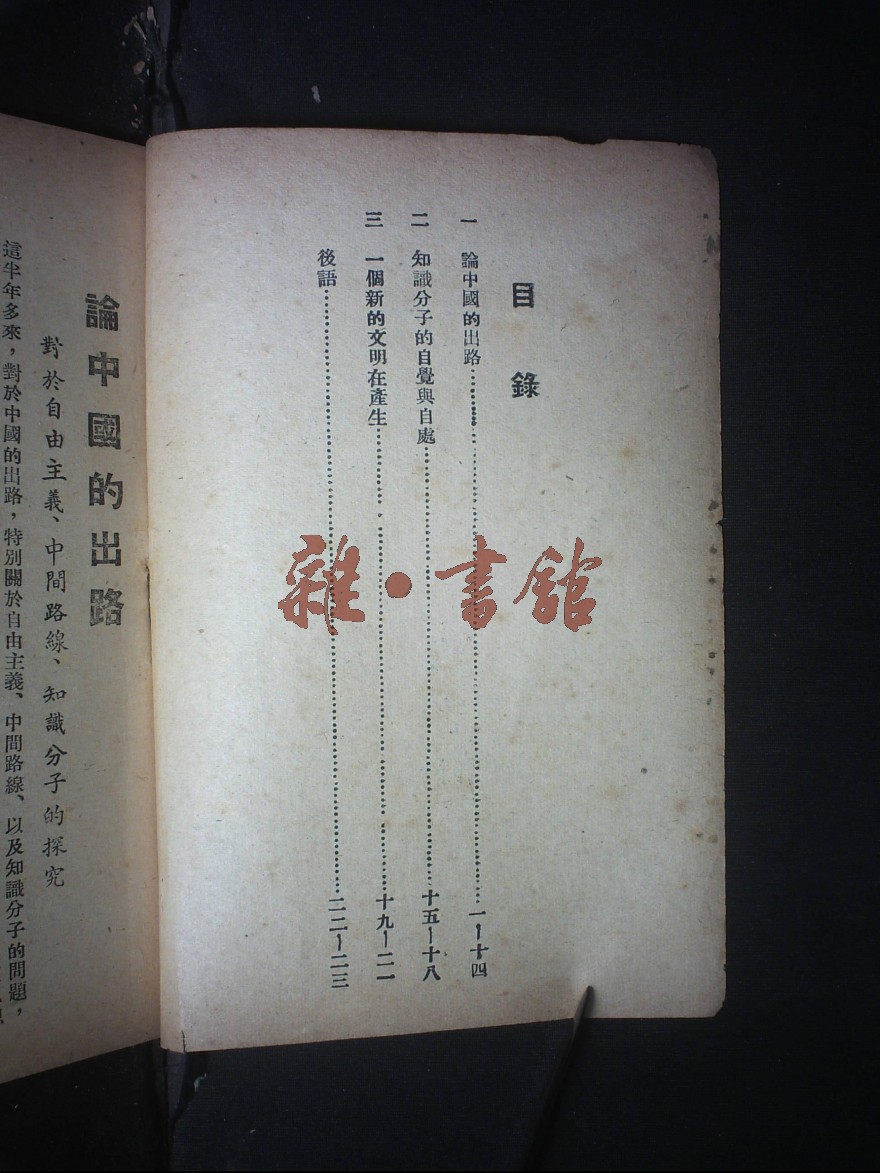 目錄
一 論中國的出路……一—十四
二 知識分子的自覺與自處……十五—十八
三 一個新的文明在產生……十九—二一
後語……二二—二三
論中國的出路
對於自由主義、中間路線、知識分子的探究
這半年多來，對於中國的出路，特別關於自由主義、中間路線、以及知識分子的問題，
雜·書館